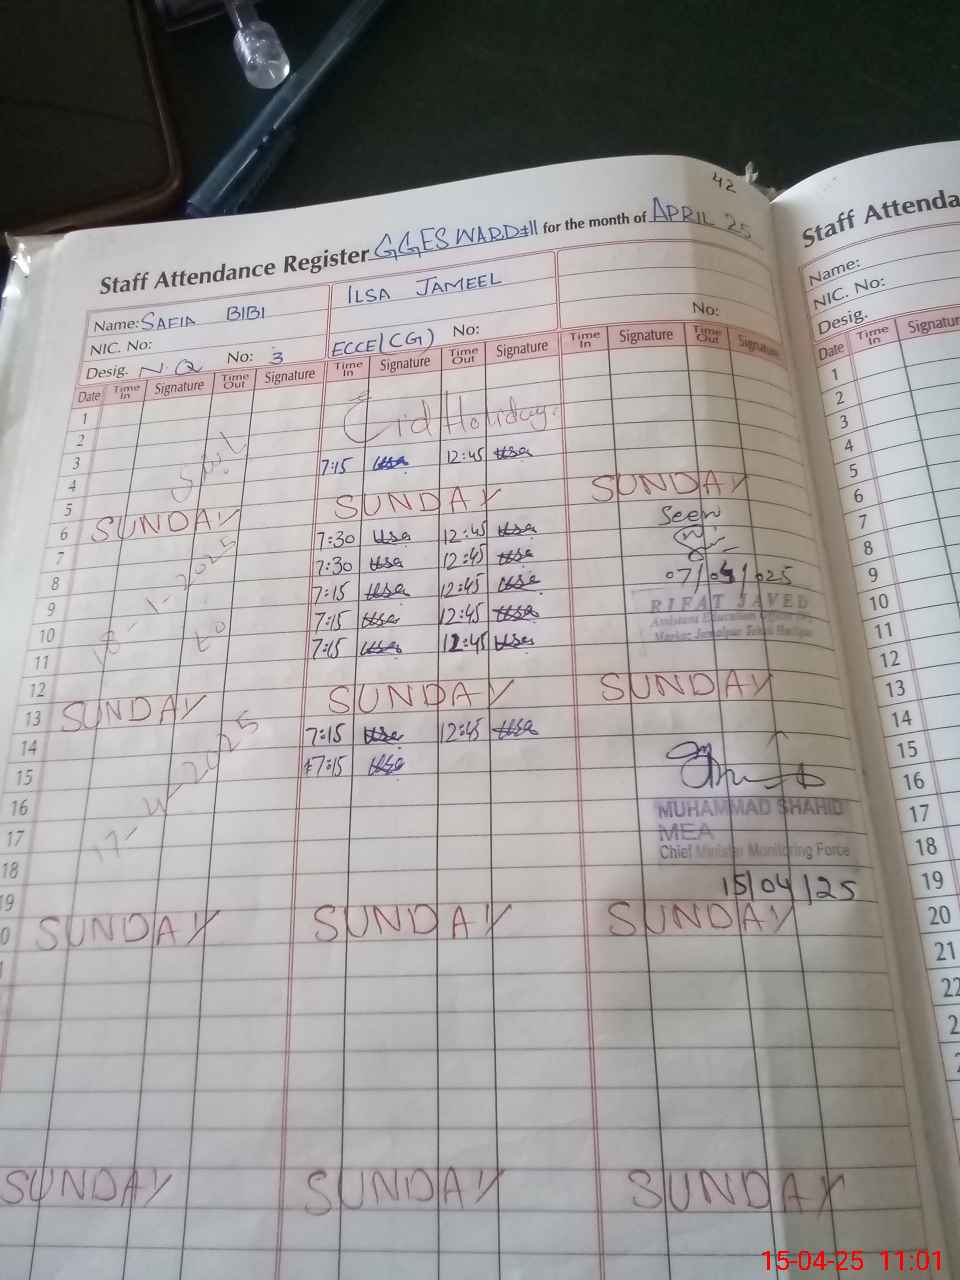 42
Staff Attendance Register GGES WARD#11 for the month of APRIL 25
Name: SAFIA BIBI
ILSA JAMEEL
NIC. No:
No:
Desig. N.Q No: 3
ECCE(CG) No:
Date Time In Signature Time Out Signature Time In Signature Time Out Signature Time In Signature Time Out Signature
1
2 Eid Holiday.
3
4 7:15 Ilsa 12:45 Ilsa
5
6 SUNDAY SUNDAY SUNDAY
7 7:30 Ilsa 12:45 Ilsa Seen
8 7:30 Ilsa 12:45 Ilsa
9 7:15 Ilsa 12:45 Ilsa 07/04/025
10 7:15 Ilsa 12:45 Ilsa RIFAT JAVED
11 7:15 Ilsa 12:45 Ilsa Assistant Education Officer
Markaz Jamalpur Tehsil Hasilpur
12
13 SUNDAY SUNDAY SUNDAY
14 7:15 Ilsa 12:45 Ilsa
15 7:15 Ilsa
16
MUHAMMAD SHAHID
17
MEA
18
Chief Minister Monitoring Force
19 15/04/25
20 SUNDAY SUNDAY SUNDAY
SUNDAY SUNDAY SUNDAY
18-1-2025
to
2025
Staff Attenda
Name:
NIC. No:
Desig.
Date Time In Signature
1
2
3
4
5
6
7
8
9
10
11
12
13
14
15
16
17
18
19
20
21
22
15-04-25 11:01